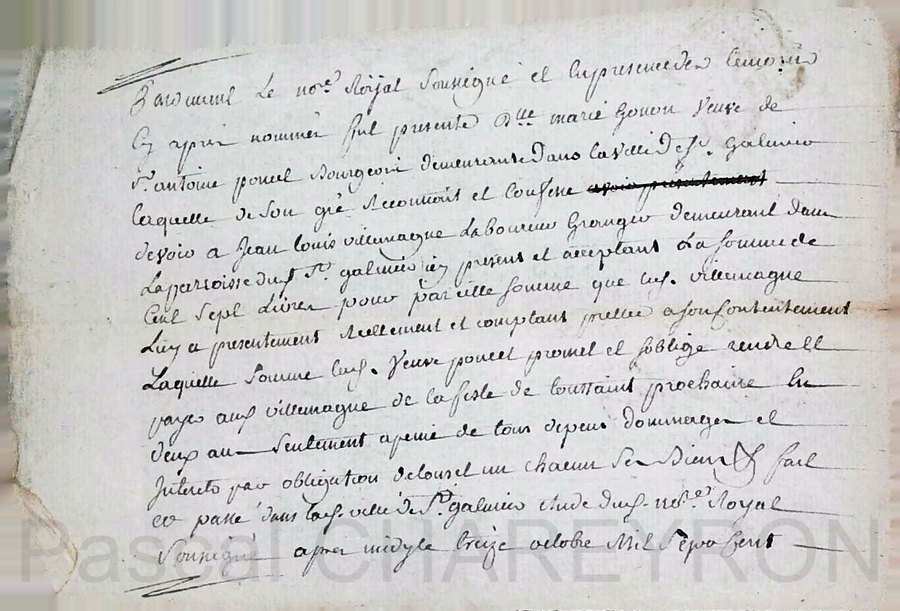 Pardevant Le no.re Royal Soussigné et En presence des temoins
Cy apres nommés fut presente D.lle marie Gonon Veuve de
S.r antoine poncet Bourgeois demeurante dans la ville de S.t galmier
Laquelle de Son gré Reconnoit et Confesse avoir presentement
devoir a Jean Louis villemagne Laboureur Granger demeurant dans
La parroisse dud. S.t galmier icy present et acceptant La Somme de
Cent Sept Livres pour pareille Somme que led. villemagne
Luy a presentement Réellement et comptant prettée a son Contentement
Laquelle Somme lad. Veuve poncet promet et soblige rendre et
payer aud villemagne de la feste de toussaint prochaine En
deux ans Seulement a peine de tous depens dommages et
Interets par obligation de tous et un chacun Ses Biens fait
et passé dans lad. ville de S.t galmier Etude dud. no.re Royal
Soussigné apres midy le treize octobre Mil Sept Cent
Pascal CHAREYRON